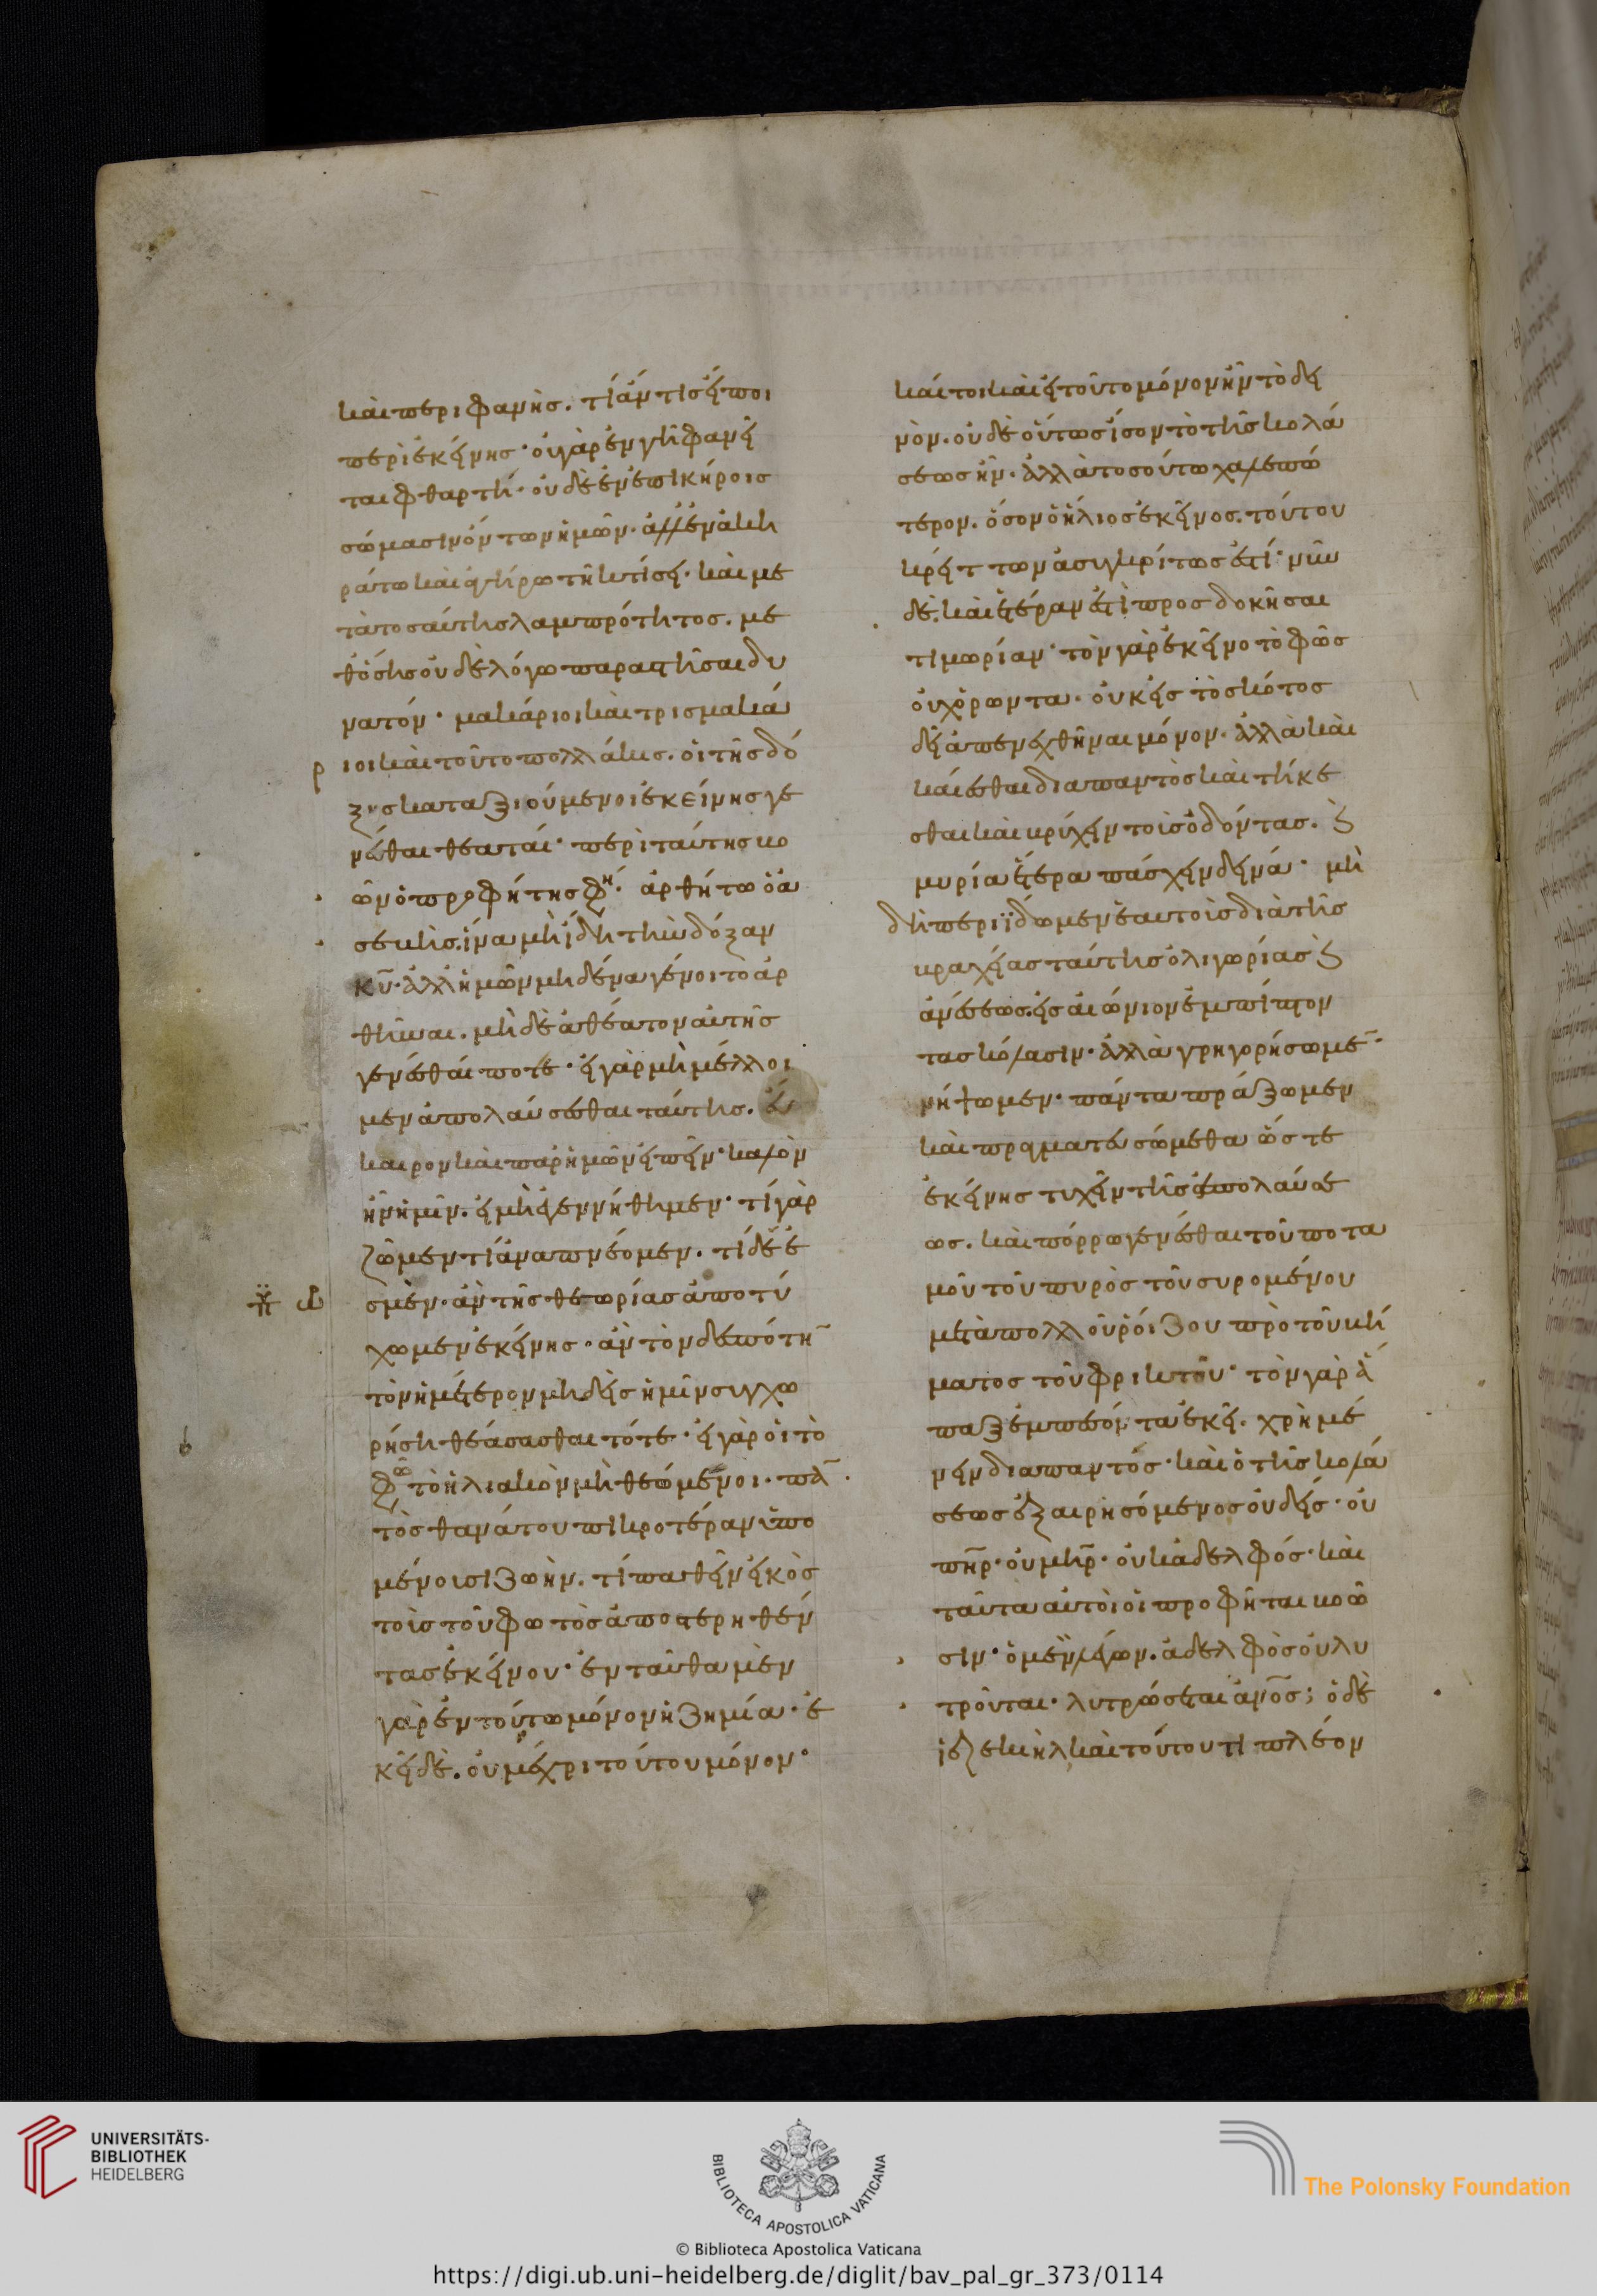 καὶ περιφανής. τί ἄν τις εἴποι
περὶ ἐκείνης· οὐ γὰρ ἐν γῆ φανεῖ
ται φθαρτῆ· οὐδὲ ἐν ἐπικήροις
σώμασιν ὄντων ἡμῶν· ἀλλ ἐν ἀκη
ράτω καὶ ἀγήρω τῆ κτίσει· καὶ με
τὰ τοσαύτης λαμπρότητος. με
θ ὅσης οὐδὲ λόγω παραστῆσαι δυ
νατόν· μακάριοι καὶ τρισμακά
ριοι καὶ τοῦτο πολλάκις. οἱ τῆς δό
ξης καταξιούμενοι ἐκείνης γε
νέσθαι θεαταί· περὶ ταύτης βο
ῶν ὁ προφήτης φη· ἀρθήτω ὁ ἀ
σεβής. ἵνα μὴ ἴδη τὴν δόξαν
κυ· ἀλλ ἡμῶν μηδένα γένοιτο ἀρ
θῆναι. μὴ δὲ ἀθέατον αὐτῆς
γενέσθαι ποτε· εἰ γὰρ μὴ μέλλοι
μεν ἀπολαύσεσθαι ταύτης. εὔ
καιρον καὶ παρ ἡμῶν εἰπεῖν· καλὸν
ἦν ἡμῖν. εἰ μὴ ἐγεννήθημεν· τί γὰρ
ζῶμεν τί ἀναπνέομεν. τί δέ ἐ
σμεν· ἂν τῆς θεωρίας ἀποτύ
χωμεν ἐκείνης· ἂν τὸν δεσπότη
τὸν ἡμέτερον μηδεὶς ἡμῖν συγχω
ρήση θεάσασθαι τότε· εἰ γὰρ οἱ τὸ
φῶ τὸ ἡλιακὸν μὴ θεώμενοι· πα
τὸς θανάτου πικροτέραν ὑπο
μένουσι ζωήν. τί παθεῖν εἰκὸς
τοῖς τοῦ φωτὸς ἀποστερηθέν
τας ἐκείνου· ἐνταῦθα μὲν
γὰρ ἐν τούτω μόνον ἡ ζημία· ἐ
κεῖ δὲ. οὐ μέχρι τούτου μόνον·
καίτοι καὶ εἰ τοῦτο μόνον ἦν τὸ δει
νὸν. οὐδὲ οὕτως ἴσον τὸ τῆς κολά
σεως ἦν· ἀλλὰ τοσούτω χαλεπώ
τερον. ὅσον ὁ ἥλιος ἐκεῖνος. τούτου
κρειττων ἀσυγκρίτως ἐστί· νῦν
δὲ. καὶ ἑτέραν ἐστὶ προσδοκῆσαι
τιμωρίαν· τὸν γὰρ ἐκεῖνο τὸ φῶς
οὐχ ὁρῶντα. οὐκ εἰς τὸ σκότος
δεῖ ἀπενεχθῆναι μόνον· ἀλλὰ καὶ
καίεσθαι διαπαντὸς καὶ τήκε
σθαι καὶ βρύχειν τοὺς ὀδόντας. ϗ
μυρία ἕτερα πάσχειν δεινά· μὴ
δὴ περιΐδωμεν ἑαυτοὺς διὰ τῆς
βραχείας ταύτης ὀλιγωρίας ϗ
ἀνέσεως. εἰς αἰώνιον ἐμπίπτον
τας κόλασιν· ἀλλὰ γρηγορήσωμε·
νήψωμεν· πάντα πράξωμεν
καὶ πραγματευσώμεθα ὥστε
ἐκείνης τυχεῖν τῆς ἀπολαύσε
ως. καὶ πόρρω γενέσθαι τοῦ ποτα
μοῦ τοῦ πυρὸς τοῦ συρομένου
μετὰ πολλοῦ ῥοίζου πρὸ τοῦ βή
ματος τοῦ φρικτοῦ· τὸν γὰρ ἅ
παξ ἐμπεσόντα ἐκεῖ. χρὴ μέ
νειν διαπαντός· καὶ ὁ τῆς κολά
σεως ἐξαιρησόμενος οὐδείς· οὐ
πηρ· οὐ μηρ· οὐκ ἀδελφός· καὶ
ταῦτα αὐτοὶ οἱ προφῆται βοῶ
σιν· ὁ μεν λέγων. ἀδελφὸς οὐ λυ
τροῦται· λυτρώσεται ἀνος; ὁ δὲ
ἰεζεκιὴλ καὶ τούτου τι πλέον
UNIVERSITÄTS-
BIBLIOTHEK
HEIDELBERG
BIBLIOTECA APOSTOLICA VATICANA
The Polonsky Foundation
© Biblioteca Apostolica Vaticana
https://digi.ub.uni-heidelberg.de/diglit/bav_pal_gr_373/0114